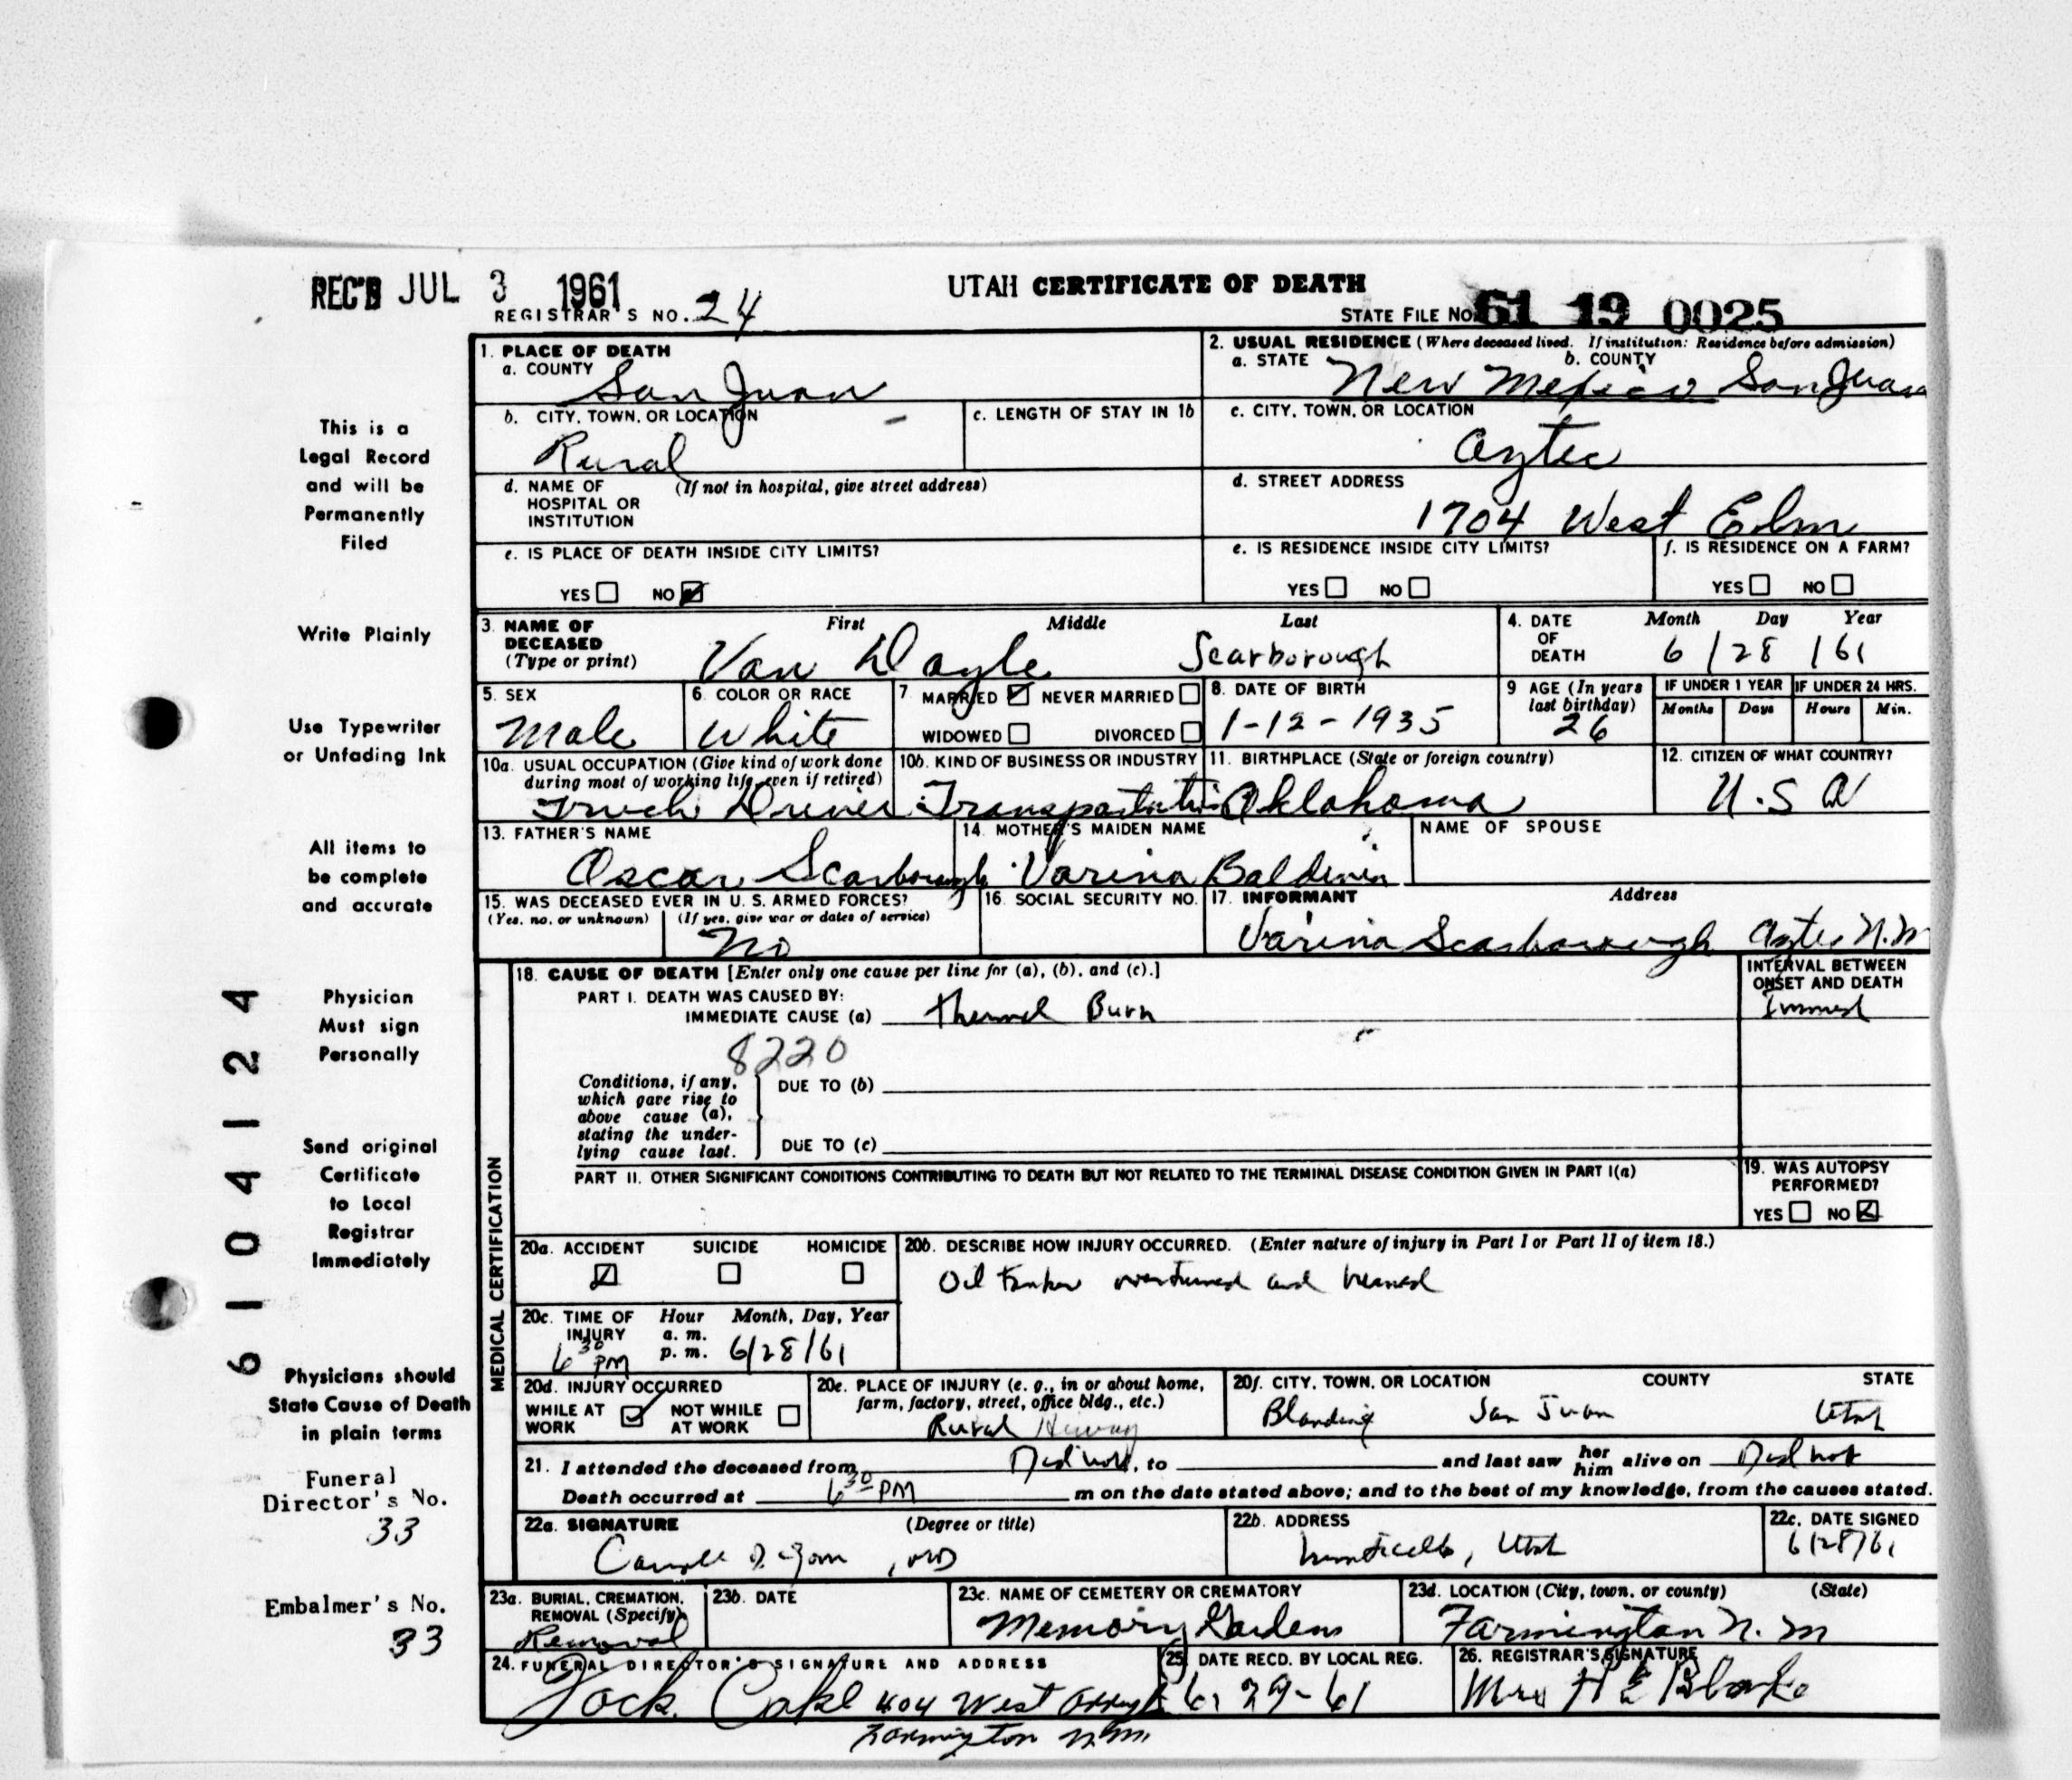 REC'D JUL 3 1961
UTAH CERTIFICATE OF DEATH
REGISTRAR'S NO. 24
STATE FILE NO. 61 19 0025
1. PLACE OF DEATH
a. COUNTY
San Juan
2. USUAL RESIDENCE (Where deceased lived. If institution: Residence before admission)
a. STATE b. COUNTY
New Mexico San Juan
b. CITY, TOWN, OR LOCATION
Rural
c. LENGTH OF STAY IN 1b
c. CITY, TOWN, OR LOCATION
Aztec
d. NAME OF HOSPITAL OR INSTITUTION (If not in hospital, give street address)
d. STREET ADDRESS
1704 West Elm
e. IS PLACE OF DEATH INSIDE CITY LIMITS?
YES NO
e. IS RESIDENCE INSIDE CITY LIMITS?
YES NO
f. IS RESIDENCE ON A FARM?
YES NO
3. NAME OF DECEASED (Type or print)
First Middle Last
Van Doyle Scarborough
4. DATE OF DEATH
Month Day Year
6/28/61
5. SEX
Male
6. COLOR OR RACE
White
7. MARRIED NEVER MARRIED
WIDOWED DIVORCED
8. DATE OF BIRTH
1-12-1935
9 AGE (In years last birthday)
26
IF UNDER 1 YEAR
Months Days
IF UNDER 24 HRS.
Hours Min.
10a. USUAL OCCUPATION (Give kind of work done during most of working life, even if retired)
Truck Driver
10b. KIND OF BUSINESS OR INDUSTRY
11. BIRTHPLACE (State or foreign country)
Oklahoma
12. CITIZEN OF WHAT COUNTRY?
U.S A
13. FATHER'S NAME
Oscar Scarborough
14. MOTHER'S MAIDEN NAME
Varina Baldwin
NAME OF SPOUSE
15. WAS DECEASED EVER IN U. S. ARMED FORCES?
(Yes, no, or unknown) (If yes, give war or dates of service)
No
16. SOCIAL SECURITY NO.
17. INFORMANT Address
Varina Scarborough Aztec N.M
18. CAUSE OF DEATH [Enter only one cause per line for (a), (b), and (c).]
PART I. DEATH WAS CAUSED BY:
IMMEDIATE CAUSE (a) Thermal Burn
INTERVAL BETWEEN ONSET AND DEATH
Immed
8220
Conditions, if any, which gave rise to above cause (a), stating the underlying cause last.
DUE TO (b)
DUE TO (c)
PART II. OTHER SIGNIFICANT CONDITIONS CONTRIBUTING TO DEATH BUT NOT RELATED TO THE TERMINAL DISEASE CONDITION GIVEN IN PART I(a)
19. WAS AUTOPSY PERFORMED?
YES NO
MEDICAL CERTIFICATION
20a. ACCIDENT SUICIDE HOMICIDE
20b. DESCRIBE HOW INJURY OCCURRED. (Enter nature of injury in Part I or Part II of item 18.)
Oil tanker overturned and burned
20c. TIME OF INJURY
Hour a. m. p. m. Month, Day, Year
6 30 PM 6/28/61
20d. INJURY OCCURRED
WHILE AT WORK NOT WHILE AT WORK
20e. PLACE OF INJURY (e. g., in or about home, farm, factory, street, office bldg., etc.)
Rural Hiway
20f. CITY, TOWN, OR LOCATION COUNTY STATE
Blanding San Juan Utah
21. I attended the deceased from Did not, to and last saw her him alive on Did not
Death occurred at 6 30 PM m on the date stated above; and to the best of my knowledge, from the causes stated.
22a. SIGNATURE (Degree or title)
, MD
22b. ADDRESS
Monticello, Utah
22c. DATE SIGNED
6/28/61
23a. BURIAL, CREMATION, REMOVAL (Specify)
Removal
23b. DATE
23c. NAME OF CEMETERY OR CREMATORY
Memory Gardens
23d. LOCATION (City, town, or county) (State)
Farmington N. M
24. FUNERAL DIRECTOR'S SIGNATURE AND ADDRESS
404 West
Farmington N.M.
25. DATE RECD. BY LOCAL REG.
6-29-61
26. REGISTRAR'S SIGNATURE
Mrs H E
This is a
Legal Record
and will be
Permanently
Filed
Write Plainly
Use Typewriter
or Unfading Ink
All items to
be complete
and accurate
Physician
Must sign
Personally
Send original
Certificate
to Local
Registrar
Immediately
Physicians should
State Cause of Death
in plain terms
Funeral
Director's No.
33
Embalmer's No.
33
6104124